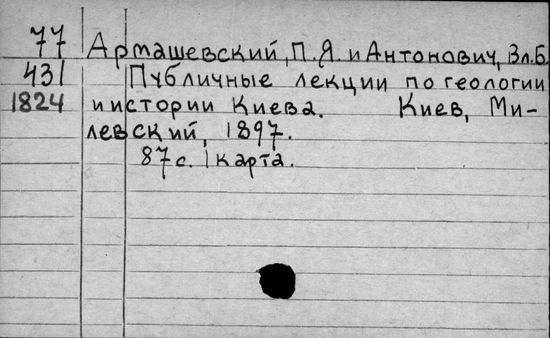 77 Армашевский, П.Я. и Антонович, Вл.Б.
431 Публичные лекции по геологии
1824 и истории Киева. Киев, Ми-
левский, 1897.
87 с. 1 карта.